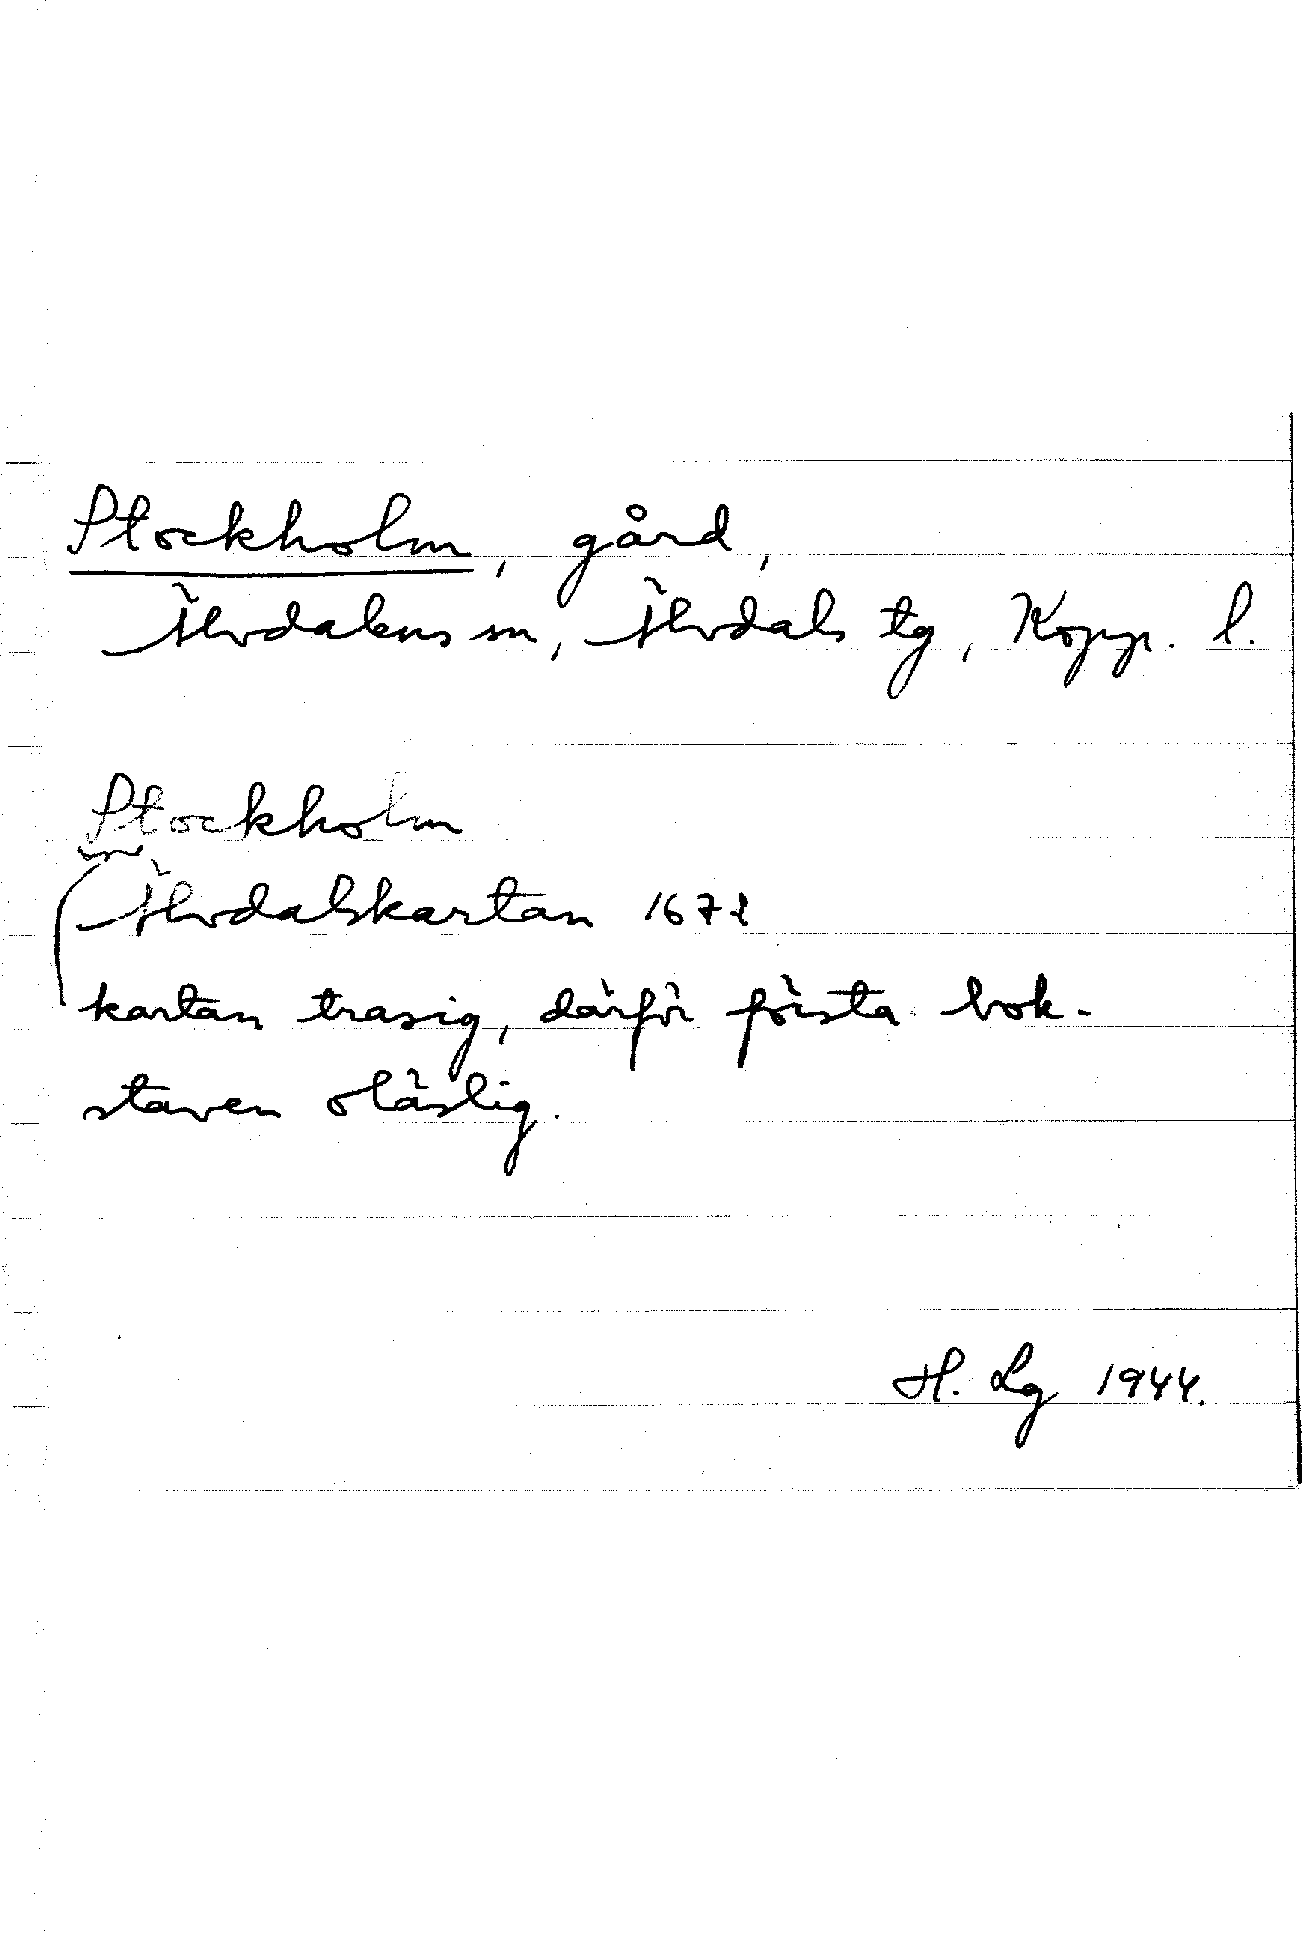 Stockholm, gård,
Älvdalens sn, Älvdals tg, Kopp. l.
Stockholm
Älvdalskartan 1671
kartan trasig, därför första bok-
staven oläslig.
H. Lg 1944.